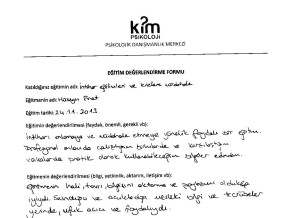 kim
PSİKOLOJİ
PSİKOLOJİK DANIŞMANLIK MERKEZİ
EĞİTİM DEĞERLENDİRME FORMU
Katıldığınız eğitimin adı: intihar eğilimleri ve krize müdahale
Eğitmenin adı:
Eğitim tarihi: 24.11.2013
Eğitimin değerlendirilmesi (faydalı, önemli, gerekli vb):
intiharı anlamaya ve müdahale etmeye yönelik faydalı bir eğitim.
Profesyonel anlamda çalıştığım
vakalarda pratik olarak kullanabileceğim bilgiler edindim.
Eğitmenin değerlendirilmesi (bilgi, yetkinlik, aktarım, iletişim vb):
Eğitmenin bilgisini aktarma ve oldukça
iyiydi. ve mesleki bilgi ve tecrübeler
yerinde, ufuk açıcı ve faydalıydı.